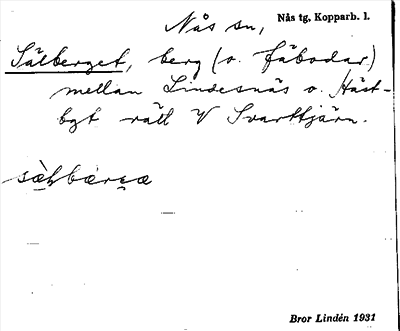 Nås sn, Nås tg, Kopparb. l.
Sälberget, berg (o. fäbodar)
mellan Lindesnäs o. Häst-
bgt rätt V Svarttjärn.
Bror Lindén 1931